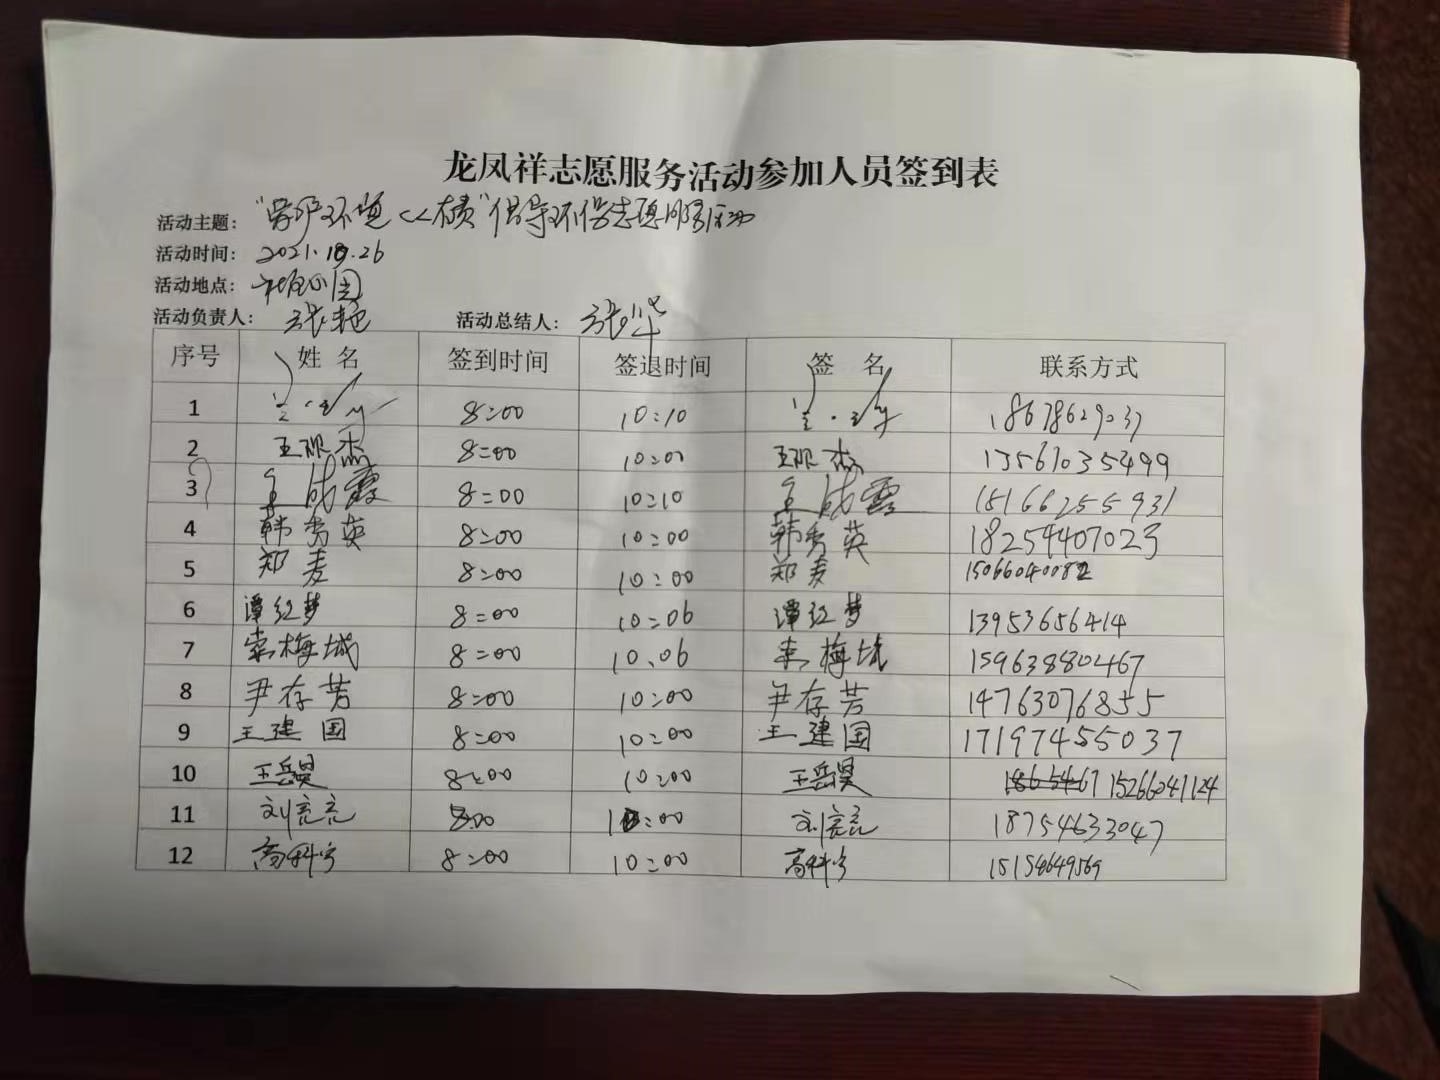 龙凤祥志愿服务活动参加人员签到表
活动主题： 环境 倡导环保志愿服务活动
活动时间： 2021.10.26
活动地点：
活动负责人： 张艳 活动总结人： 张华
序号 姓名 签到时间 签退时间 签名 联系方式
1 8:00 10:10 18678629037
2 王砚杰 8:00 10:00 王砚杰 13561035499
3 成霞 8:00 10:10 成霞 15166255931
4 韩秀英 8:00 10:00 韩秀英 18254407023
5 郑麦 8:00 10:00 郑麦 15066040082
6 谭红梦 8:00 10:06 谭红梦 13953656414
7 梅城 8:00 10.06 梅城 159638880467
8 尹存芳 8:00 10:00 尹存芳 14763076855
9 王建国 8:00 10:00 王建国 17197455037
10 王岳昊 8:00 10:00 王岳昊 15266041124
11 刘亮亮 8:00 10:00 刘亮亮 18754633047
12 高科宇 8:00 10:00 高科宇 15154649569